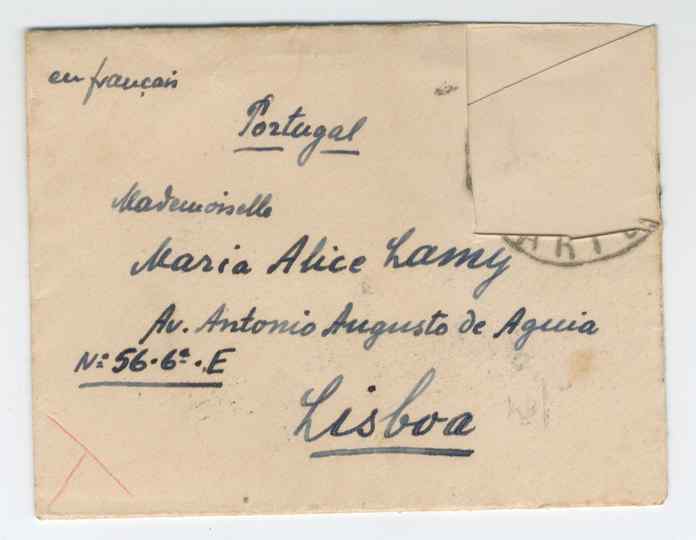 en français
Portugal
Mademoiselle
Maria Alice Lamy
Av. Antonio Augusto de Aguia
Nº 56·6º·E
Lisboa